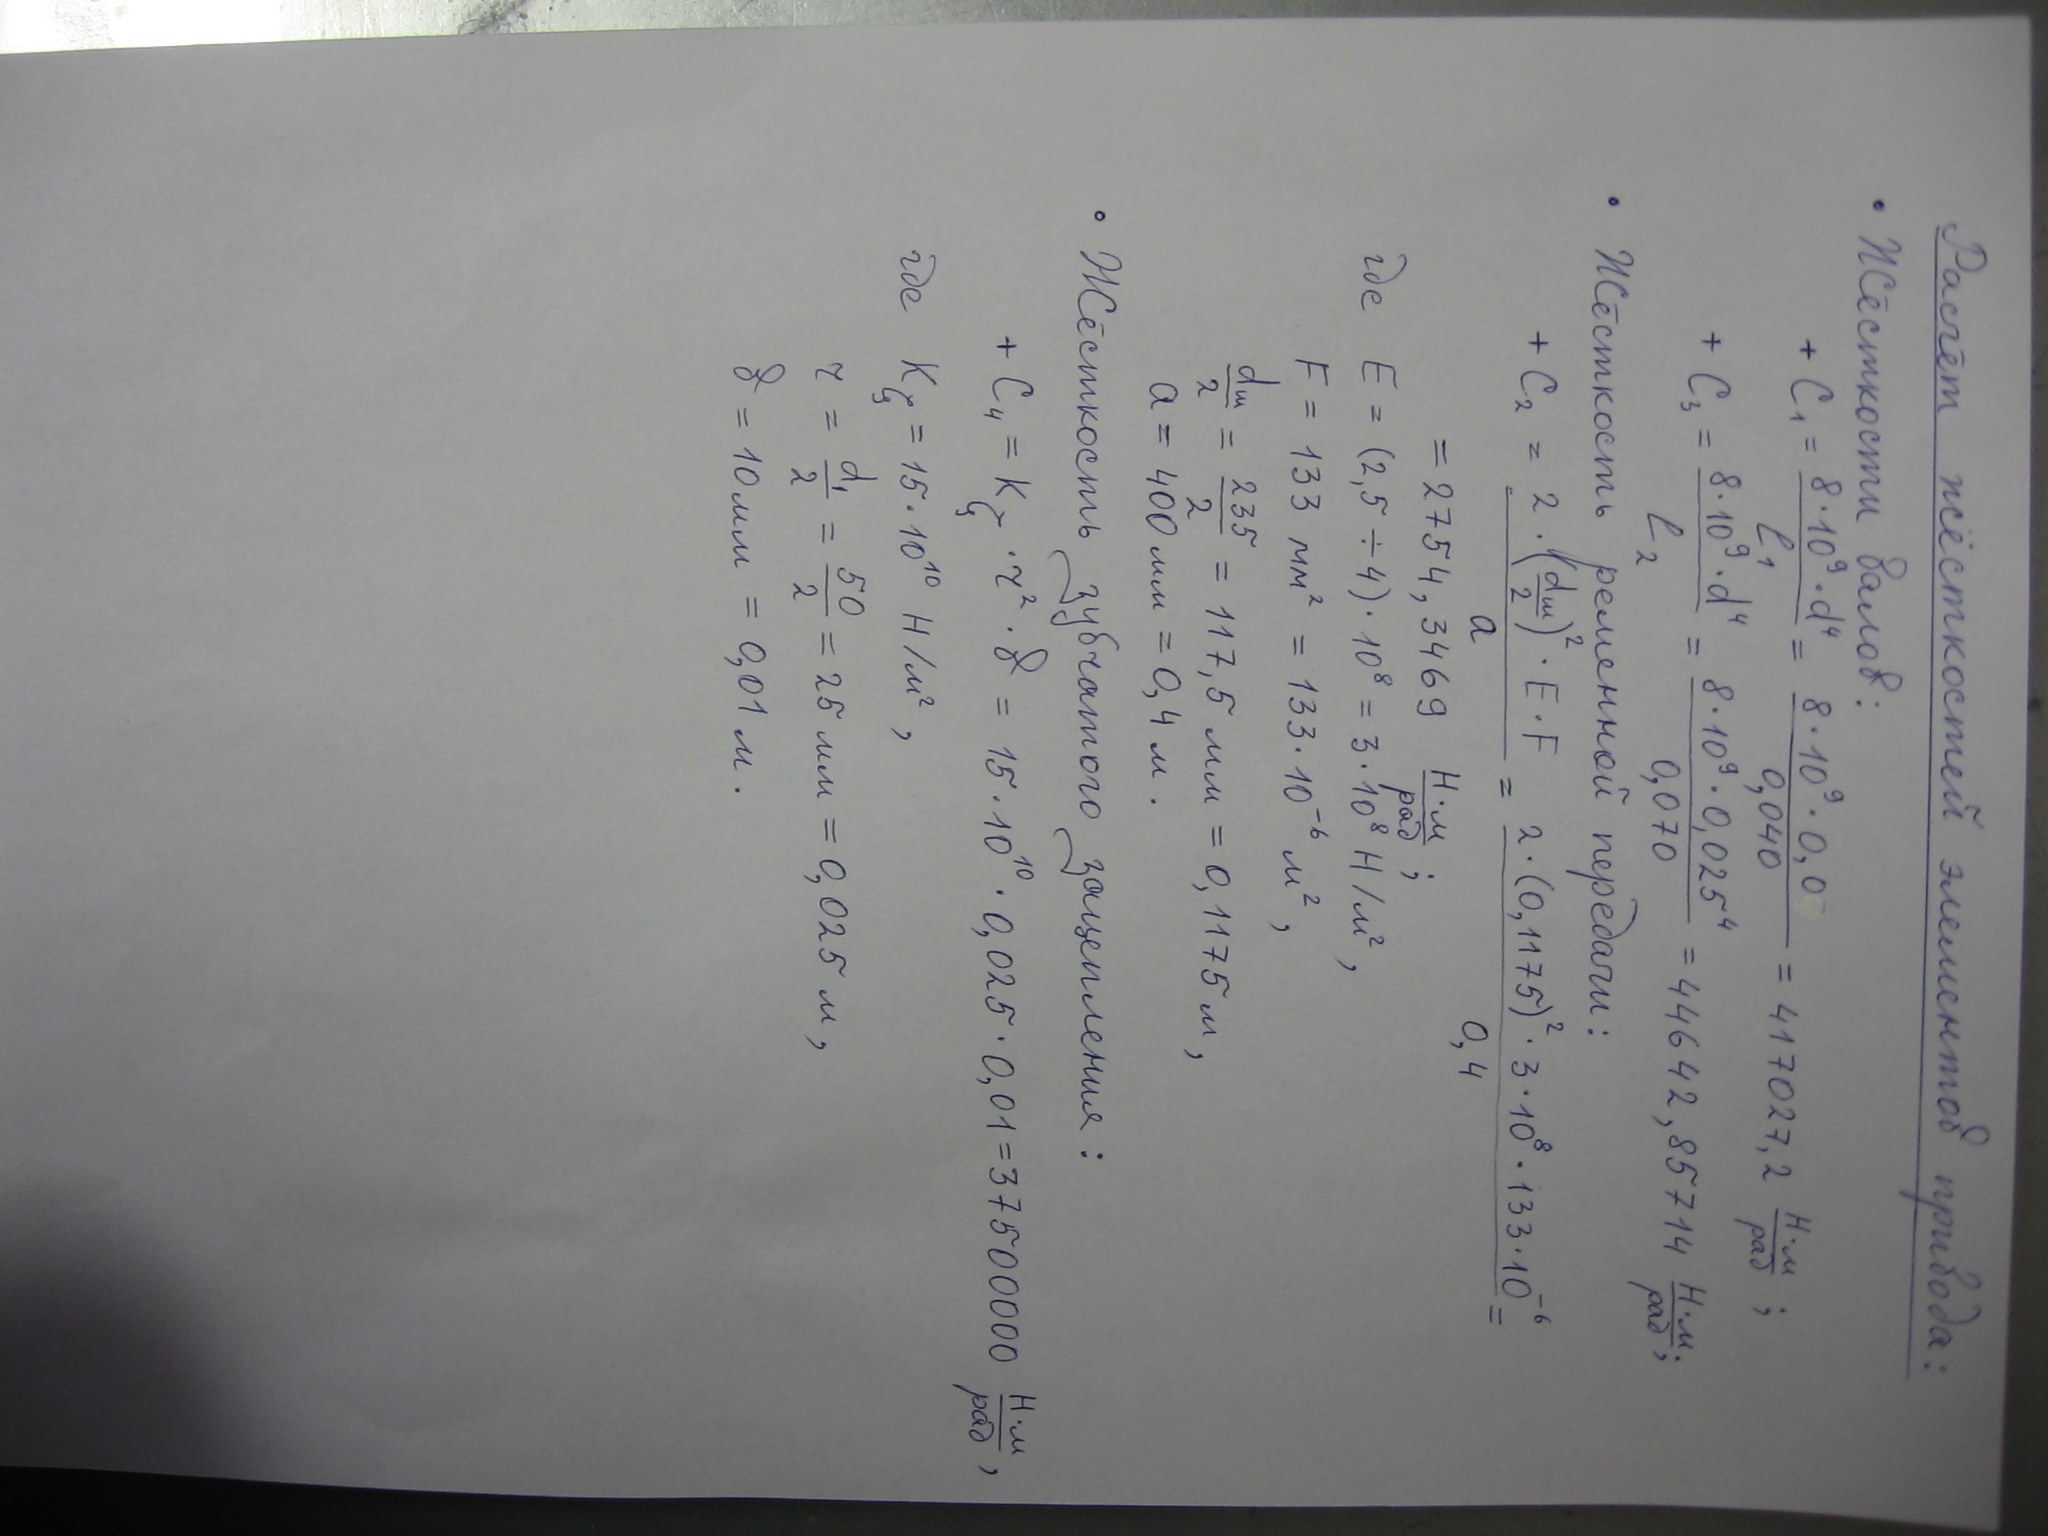 Расчёт жёсткостей элементов привода:
• Жёсткости валов:
+ C₁ = 8·10⁹·d⁴ / l₁ = 8·10⁹·0,0 / 0,040 = 417027,2 Н·м/рад ;
+ C₃ = 8·10⁹·d⁴ / l₂ = 8·10⁹·0,025⁴ / 0,070 = 44642,85714 Н·м/рад ;
• Жёсткость ременной передачи:
+ C₂ = 2·(dш/2)²·E·F / a = 2·(0,1175)²·3·10⁸·133·10⁻⁶ / 0,4 =
= 2754,3469 Н·м/рад ;
где E = (2,5 ÷ 4)·10⁸ = 3·10⁸ Н/м²,
F = 133 мм² = 133·10⁻⁶ м²,
dш/2 = 235/2 = 117,5 мм = 0,1175 м,
a = 400 мм = 0,4 м.
• Жёсткость зубчатого зацепления:
+ C₄ = K ·r²·в = 15·10¹⁰·0,025·0,01 = 37500000 Н·м/рад ,
где K = 15·10¹⁰ Н/м²,
r = d₁/2 = 50/2 = 25 мм = 0,025 м,
в = 10мм = 0,01 м.